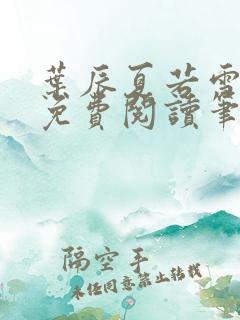 葉辰夏若雪
免費閱讀筆
隔空手
未经同意禁止转载